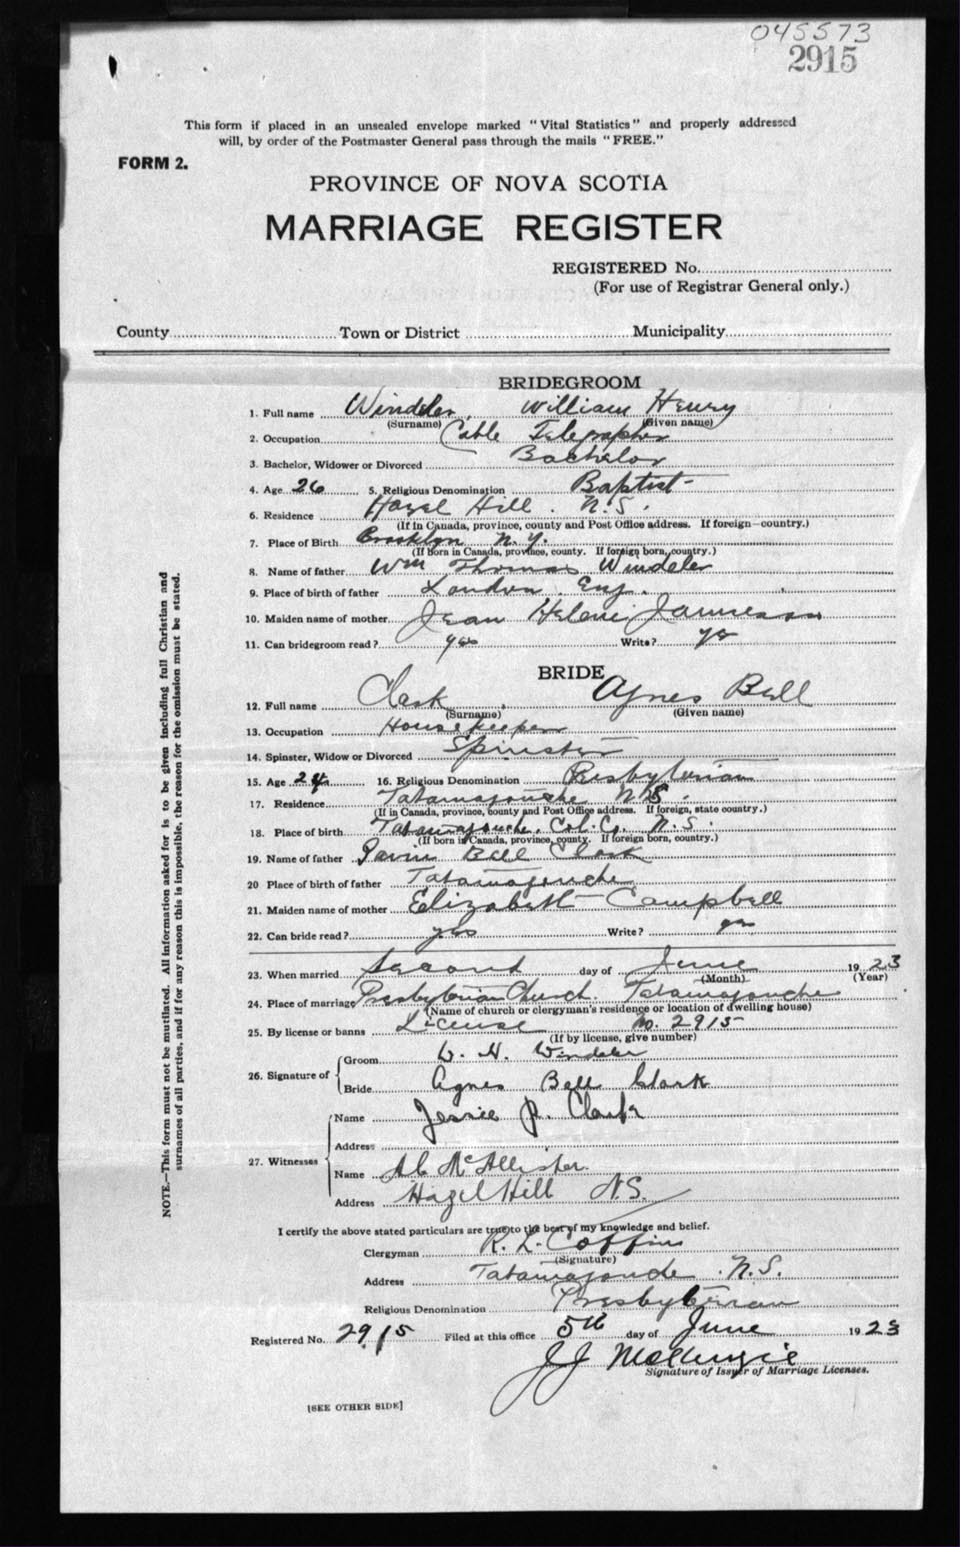 045573
2915
This form if placed in an unsealed envelope marked "Vital Statistics" and properly addressed
will, by order of the Postmaster General pass through the mails "FREE."
FORM 2.
PROVINCE OF NOVA SCOTIA
MARRIAGE REGISTER
REGISTERED No.
(For use of Registrar General only.)
County Town or District Municipality
BRIDEGROOM
1. Full name Windeler, William Henry
(Surname) (Given name)
2. Occupation Cable Telegrapher
3. Bachelor, Widower or Divorced Bachelor
4. Age 26 5. Religious Denomination Baptist
6. Residence Hazel Hill. N.S.
(If in Canada, province, county and Post Office address. If foreign—country.)
7. Place of Birth Brooklyn N.Y.
(If born in Canada, province, county. If foreign born, country.)
8. Name of father Wm Thomas Windeler
9. Place of birth of father London. Eng.
10. Maiden name of mother Jean Helene Jamieson
11. Can bridegroom read? yes Write? yes
BRIDE
12. Full name Clark, Agnes Bell
(Surname) (Given name)
13. Occupation Housekeeper
14. Spinster, Widow or Divorced Spinster
15. Age 24 16. Religious Denomination Presbyterian
17. Residence Tatamagouche N.S.
(If in Canada, province, county and Post Office address. If foreign, state country.)
18. Place of birth Tatamagouche. Col. Co. N.S.
(If born in Canada, province, county. If foreign born, country.)
19. Name of father Bell Clark
20 Place of birth of father Tatamagouche
21. Maiden name of mother Elizabeth Campbell
22. Can bride read? yes Write? yes
23. When married Second day of June 1923
(Month) (Year)
24. Place of marriage Presbyterian Church. Tatamagouche
(Name of church or clergyman's residence or location of dwelling house)
25. By license or banns License No. 2915
(If by license, give number)
26. Signature of
Groom W. H. Windeler
Bride Agnes Bell Clark
27. Witnesses
Name Jessie P. Clark
Address
Name A C McAllister
Address Hazel Hill N.S.
I certify the above stated particulars are true to the best of my knowledge and belief.
Clergyman R. L. Coffin
(Signature)
Address Tatamagouche. N.S.
Religious Denomination Presbyterian
Registered No. 2915 Filed at this office 5th day of June 1923
JJ McKenzie
Signature of Issuer of Marriage Licenses.
[SEE OTHER SIDE]
NOTE.—This form must not be mutilated. All information asked for is to be given including full Christian and
surnames of all parties, and if for any reason this is impossible, the reason for the omission must be stated.